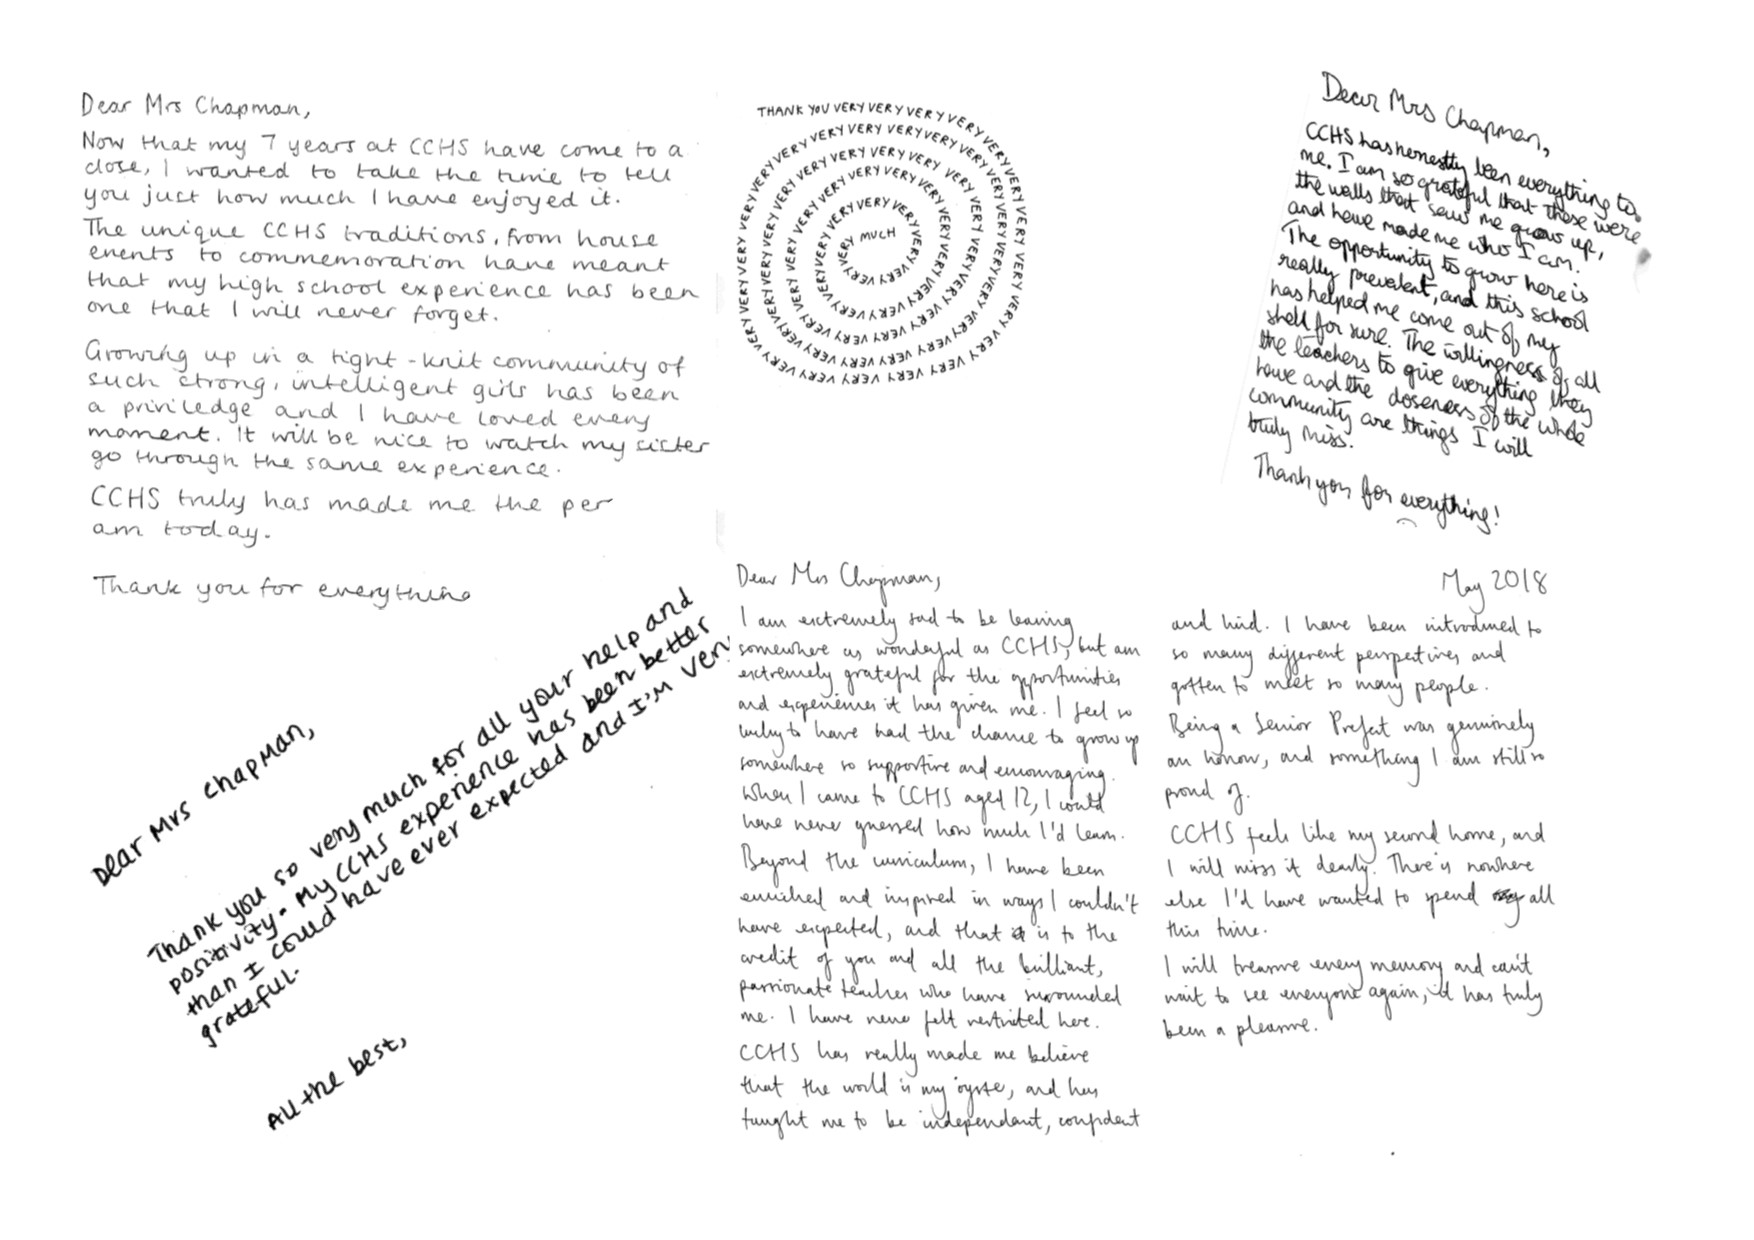 Dear Mrs Chapman,
Now that my 7 years at CCHS have come to a
close, I wanted to take the time to tell
you just how much I have enjoyed it.
The unique CCHS traditions, from house
events to commemoration have meant
that my high school experience has been
one that I will never forget.
Growing up in a tight-knit community of
such strong, intelligent girls has been
a priviledge and I have loved every
moment. It will be nice to watch my sister
go through the same experience.
CCHS truly has made me the per
am today.
Thank you for everything
THANK YOU VERY VERY VERY VERY VERY VERY VERY VERY VERY VERY VERY VERY VERY VERY VERY VERY VERY VERY VERY VERY VERY VERY VERY VERY VERY VERY VERY VERY VERY VERY VERY VERY VERY VERY VERY VERY VERY VERY VERY VERY VERY VERY VERY VERY VERY VERY VERY VERY VERY VERY VERY VERY VERY VERY VERY VERY VERY VERY VERY VERY MUCH
Dear Mrs Chapman,
CCHS has honestly been everything to
me. I am so grateful that these were
the walls that saw me grow up,
and have made me who I am.
The opportunity to grow here is
really prevalent, and this school
has helped me come out of my
shell for sure. The willingness of all
the teachers to give everything they
have and the closeness of the whole
community are things I will
truly miss.
Thank you for everything!
Dear Mrs Chapman,
Thank you so very much for all your help and
positivity. My CCHS experience has been better
than I could have ever expected and I'm very
grateful.
All the best,
Dear Mrs Chapman,
I am extremely sad to be leaving
somewhere as wonderful as CCHS, but am
extremely grateful for the opportunities
and experiences it has given me. I feel so
lucky to have had the chance to grow up
somewhere so supportive and encouraging.
When I came to CCHS aged 12, I could
have never guessed how much I'd learn.
Beyond the curriculum, I have been
enriched and inspired in ways I couldn't
have expected, and that is to the
credit of you and all the brilliant,
passionate teachers who have surrounded
me. I have never felt restricted here.
CCHS has really made me believe
that the world is my oyster, and has
taught me to be independant, confident
May 2018
and kind. I have been introduced to
so many different perspectives and
gotten to meet so many people.
Being a Senior Prefect was genuinely
an honour, and something I am still so
proud of.
CCHS feels like my second home, and
I will miss it dearly. There's nowhere
else I'd have wanted to spend all
this time.
I will treasure every memory and can't
wait to see everyone again, it has truly
been a pleasure.